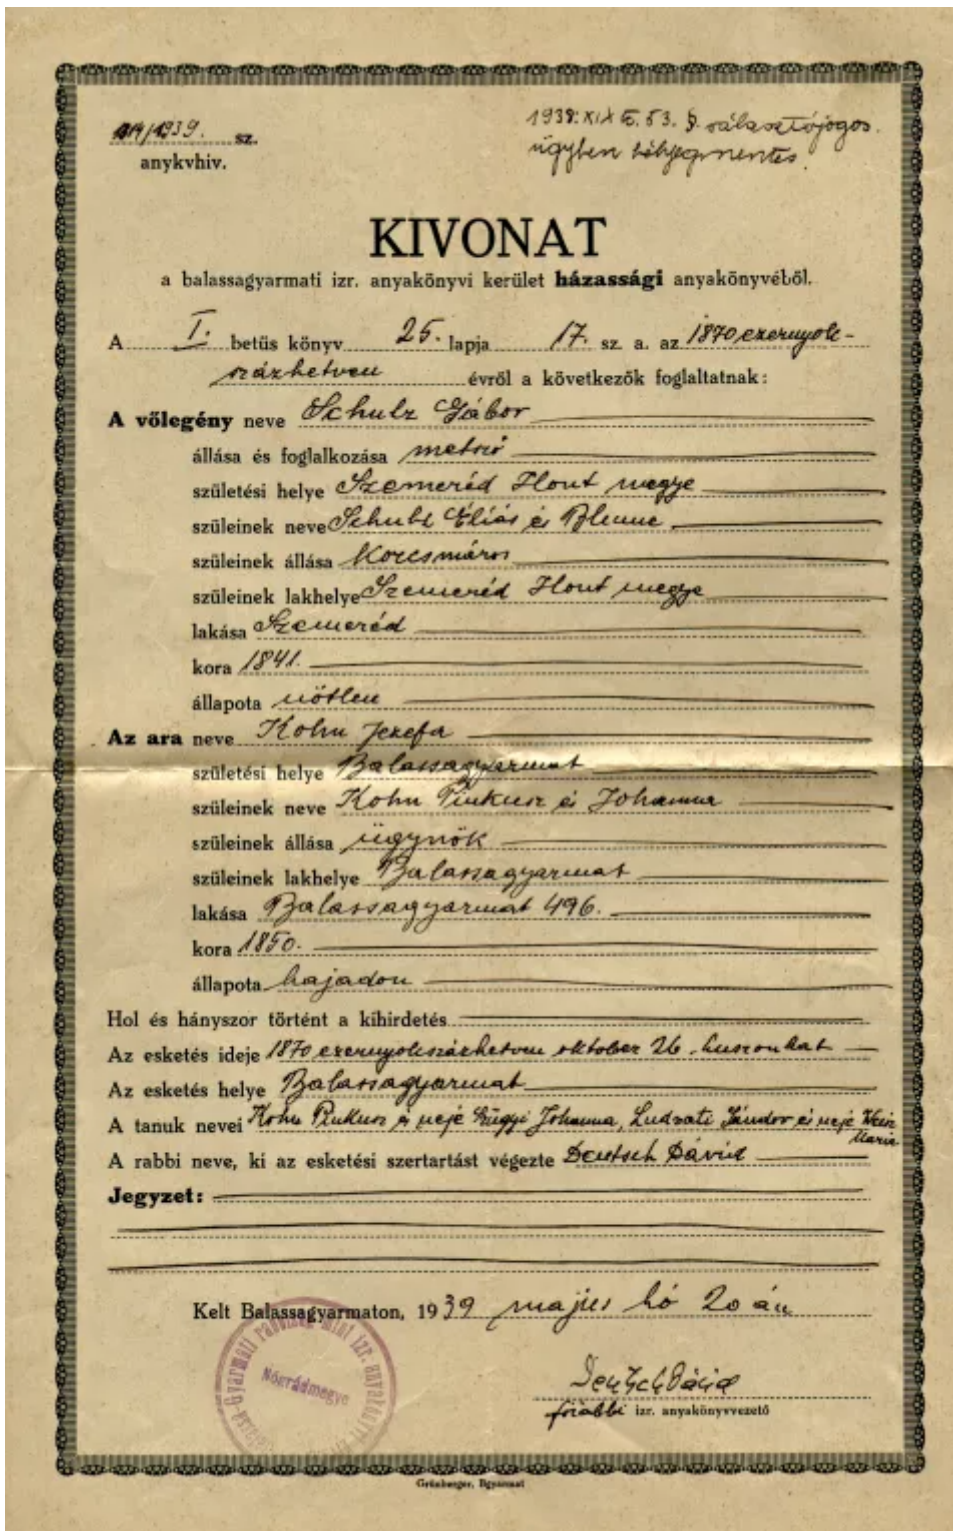 1939. sz.
anykvhiv.
1938: XIX tc. 53. § választójogos
ügyben bélyegmentes.
KIVONAT
a balassagyarmati izr. anyakönyvi kerület házassági anyakönyvéből.
A I. betüs könyv 25. lapja 17. sz. a. az 1870 ezernyolc-
százhetven évről a következők foglaltatnak:
A vőlegény neve Schulz Gábor
állása és foglalkozása metsző
születési helye Szemeréd Hont megye
szüleinek neve Schulz Éliás és Blume
szüleinek állása korcsmáros
szüleinek lakhelye Szemeréd Hont megye
lakása Szemeréd
kora 1841.
állapota nőtlen
Az ara neve Kohn Jozefa
születési helye Balassagyarmat
szüleinek neve Kohn Pinkusz és Johanna
szüleinek állása ügynök
szüleinek lakhelye Balassagyarmat
lakása Balassagyarmat 496.
kora 1850.
állapota hajadon
Hol és hányszor történt a kihirdetés
Az esketés ideje 1870 ezernyolcszázhetven oktober 26. huszonhat
Az esketés helye Balassagyarmat
A tanuk nevei Kohn Pinkusz és neje Johanna, Ludvati Sándor és neje Weisz
Maria
A rabbi neve, ki az esketési szertartást végezte Deutsch Dávid
Jegyzet:
Kelt Balassagyarmaton, 1939 majus hó 20 án
Nógrádmegye
Deutsch Dávid
főrabbi izr. anyakönyvvezető
Grünberger, Bgyarmat